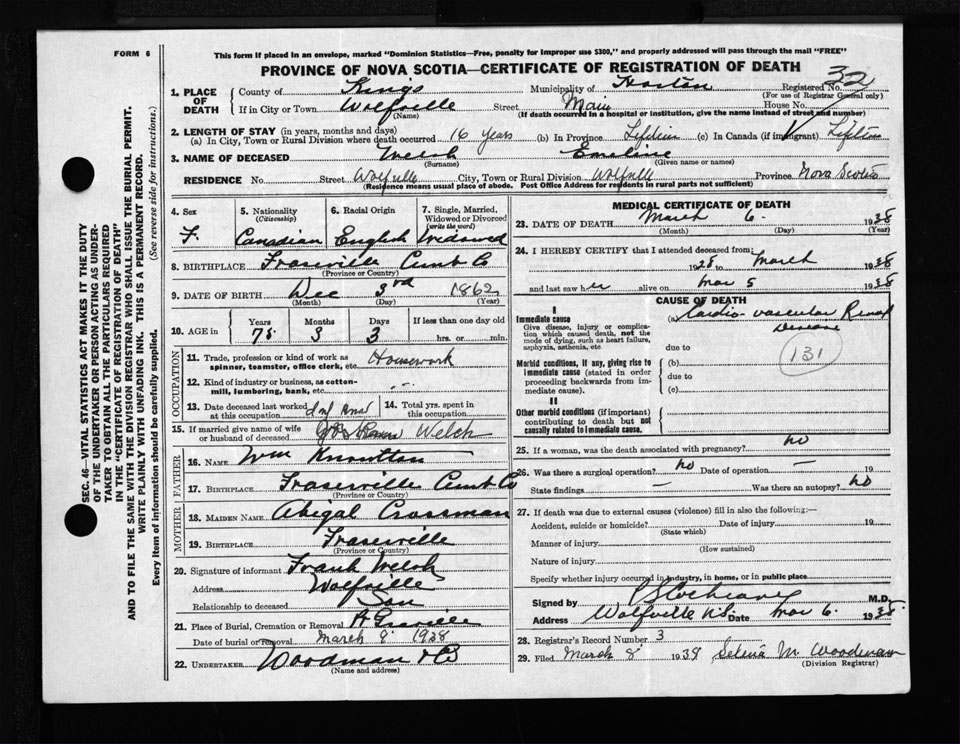 FORM 6
This form if placed in an envelope, marked "Dominion Statistics—Free, penalty for improper use $300," and properly addressed will pass through the mail "FREE"
PROVINCE OF NOVA SCOTIA—CERTIFICATE OF REGISTRATION OF DEATH
1. PLACE OF DEATH
County of Kings Municipality of Horton Registered No. 32
(For use of Registrar General only)
If in City or Town Wolfville Street Main House No.
(Name) (If death occurred in a hospital or institution, give the name instead of street and number)
2. LENGTH OF STAY (in years, months and days)
(a) In City, Town or Rural Division where death occurred 16 years (b) In Province (c) In Canada (if immigrant)
3. NAME OF DECEASED Welch Emeline
(Surname) (Given name or names)
RESIDENCE No. Street Wolfville City, Town or Rural Division Wolfville Province Nova Scotia
(Residence means usual place of abode. Post Office Address for residents in rural parts not sufficient)
4. Sex
F.
5. Nationality
(Citizenship)
Canadian
6. Racial Origin
English
7. Single, Married, Widowed or Divorced
(write the word)
Widowed
8. BIRTHPLACE Fraserville Cumb Co
(Province or Country)
9. DATE OF BIRTH Dec 3rd 1862
(Month) (Day) (Year)
10. AGE in
Years Months Days If less than one day old
75 3 3 hrs. or min.
OCCUPATION
11. Trade, profession or kind of work as spinner, teamster, office clerk, etc. Housework
12. Kind of industry or business, as cotton-mill, lumbering, bank, etc.
13. Date deceased last worked at this occupation
14. Total yrs. spent in this occupation
15. If married give name of wife or husband of deceased Welch
FATHER
16. Name Wm Knowlton
17. Birthplace Fraserville Cumb Co
(Province or Country)
MOTHER
18. Maiden Name Abigal Crossman
19. Birthplace Fraserville
(Province or Country)
20. Signature of informant Frank Welch
Address Wolfville
Relationship to deceased Son
21. Place of Burial, Cremation or Removal
Date of burial or removal March 8 1938
22. Undertaker Woodman & Co
(Name and address)
MEDICAL CERTIFICATE OF DEATH
23. DATE OF DEATH March 6. 1938
(Month) (Day) (Year)
24. I HEREBY CERTIFY that I attended deceased from:
1928 to March 1938
and last saw her alive on Mar 5 1938
CAUSE OF DEATH
I
Immediate cause
Give disease, injury or complication which caused death, not the mode of dying, such as heart failure, asphyxia, asthenia, etc.
(a) Cardio-vascular Renal disease
due to
131
Morbid conditions, if any, giving rise to immediate cause (stated in order proceeding backwards from immediate cause).
(b)
due to
(c)
II
Other morbid conditions (if important) contributing to death but not causally related to immediate cause.
25. If a woman, was the death associated with pregnancy? no
26. Was there a surgical operation? no Date of operation — 19
State findings — Was there an autopsy? no
27. If death was due to external causes (violence) fill in also the following:—
Accident, suicide or homicide? Date of injury 19
(State which)
Manner of injury
(How sustained)
Nature of injury
Specify whether injury occurred in industry, in home, or in public place
Signed by M.D.
Address Wolfville N.S. Date Mar 6. 1938
28. Registrar's Record Number 3
29. Filed March 8 1938 Selena M Woodman
(Division Registrar)
SEC. 46—VITAL STATISTICS ACT MAKES IT THE DUTY
OF THE UNDERTAKER OR PERSON ACTING AS UNDER-
TAKER TO OBTAIN ALL THE PARTICULARS REQUIRED
IN THE "CERTIFICATE OF REGISTRATION OF DEATH"
AND TO FILE THE SAME WITH THE DIVISION REGISTRAR WHO SHALL ISSUE THE BURIAL PERMIT.
WRITE PLAINLY WITH UNFADING INK. THIS IS A PERMANENT RECORD.
Every item of information should be carefully supplied. (See reverse side for instructions.)